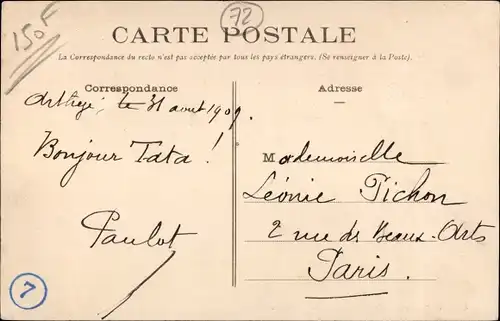 150F
72
CARTE POSTALE
La Correspondance du recto n'est pas acceptée par tous les pays étrangers. (Se renseigner à la Poste).
Correspondance
le 31 aout 1909.
Bonjour Tata !
Paulot
7
Adresse
Mademoiselle
Léonie Pichon
2 rue des Beaux-Arts
Paris.